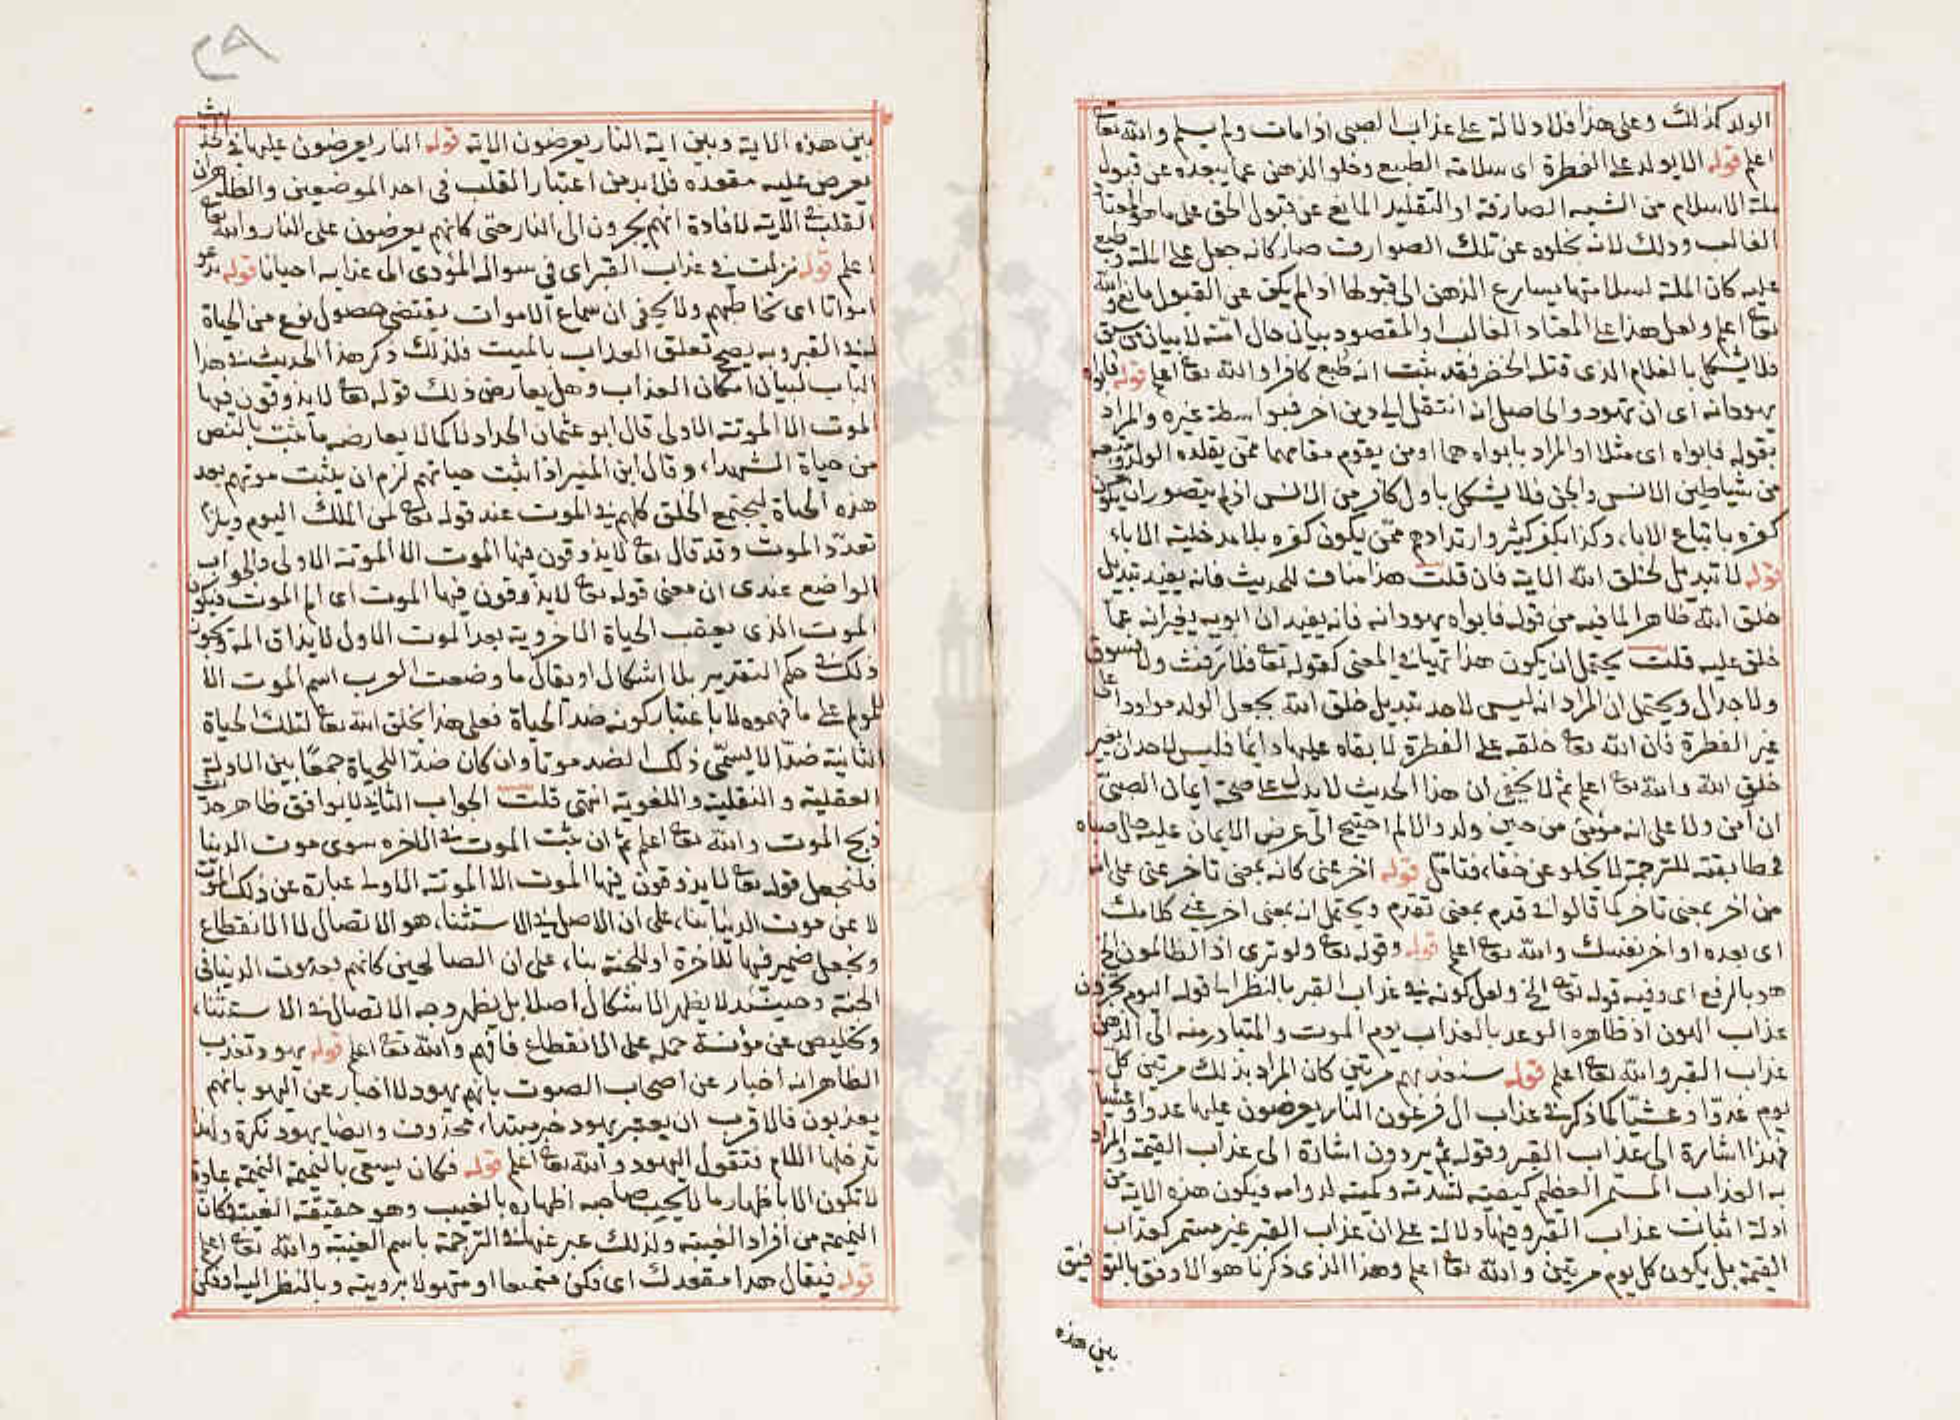 الولد كذلك وعلى هذا فلا دلالة على عذاب الصبى اذا مات ولم يسلم والله تعا
اعلم قوله الا يولد على الفطرة اى سلامة الطبع وخلو الذهن عما يبعده عن قبول
ملة الاسلام من الشبه الصارفة او التقليد المانع عن قبول الحق على ما هو المعتاد
الغالب وذلك لانه بخلوه عن تلك الصوارف صار كانه جعل على الملة وطبع
عليه كان الملة لسلامتها يسارع الذهن الى قبولها اذا لم يكن عن القبول مانع والله
تعا اعلم ولعل هذا على المعتاد الغالب والمقصود بيان حال امته لا بيان من سبق
فلا يشكل بالغلام الذى قتله الخضر فقد ثبت انه طبع كافرا والله تعا اعلم قوله فابواه
يهودانه اى ان تهود والحاصل انه انتقل الى دين اخر فبواسطة غيره والمراد
بقوله فابواه اى مثلا او المراد بابواه هما او من يقوم مقامهما ممن يقلده الولد
من شياطين الانس والجن فلا يشكل باول كافر من الانس اذ لم يتصور ان يكون
كفره باتباع الاباء وكذا بكفر كثير وارتدادهم ممن يكون كفره بلا مدخلية الاباء
قوله لا تبديل لخلق الله الاية فان قلت هذا مناف للحديث فانه يفيد تبديل
خلق الله ظاهرا لما فيه من قوله فابواه يهودانه فانه يفيد ان ابويه يغيرانه عما
خلق عليه قلت يحتمل ان يكون هذا نهيا فى المعنى كقوله تعا فلا رفث ولا فسوق
ولا جدال ويحتمل ان المراد انه ليس لاحد تبديل خلق الله بجعل الولد مولودا على
غير الفطرة فان الله تعا خلقه على الفطرة لا بقاه عليها دائما فليس لاحد ان يغير
خلق الله والله تعا اعلم ثم لا يخفى ان هذا الحديث لا يدل على صحة ايمان الصبى
ان آمن ولا على انه مؤمن من حين ولد والا لم احتيج الى عرض الايمان عليه حال صباه
فمطابقته للترجمة لا يخلو عن خفاء فتامل قوله اخر عنى كانه بمعنى تاخر عنى على انه
من اخر بمعنى تاخر كما قالوا فى قدم بمعنى تقدم ويحتمل انه بمعنى اخر عنى كلامك
اى بعده او اخر نفسك والله تعا اعلم قوله وقوله تعا ولو ترى اذ الظالمون الخ
هو بالرفع اى وفيه قوله تعا الخ ولعل كونه فى عذاب القبر بالنظر الى قوله اليوم تجزون
عذاب الهون اذ ظاهره الوعد بالعذاب يوم الموت والمتبادر منه الى الذهن
عذاب القبر والله تعا اعلم قوله سنعذبهم مرتين كان المراد بذلك مرتين كل
يوم غدوا وعشيا كما ذكر فى عذاب ال فرعون النار يعرضون عليها غدوا وعشيا
فهذا اشارة الى عذاب القبر وقوله ثم يردون اشارة الى عذاب القيمة والمراد
به العذاب المستمر العظيم كيفيته لشدته وكميته لدوامه فيكون هذه الاية من
ادلة اثبات عذاب القبر وفيها دلالة على ان عذاب القبر غير مستمر كعذاب
القيمة بل يكون كل يوم مرتين والله تعا اعلم وهذا الذى ذكرنا هو الاوفق بالتوفيق
بين هذه
٢٨
بين هذه الاية وبين اية النار يعرضون الاية قوله النار يعرضون عليها فى الحديث
يعرض عليه مقعده فلا بد من اعتبار القلب فى احد الموضعين والظاهر ان
القلب فى الاية لافادة انهم يجرون الى النار حتى كانهم يعرضون على النار والله تعا
اعلم قوله نزلت فى عذاب القبر اى فى سواله المؤدى الى عذابه احيانا قوله تدعو
امواتا اى تخاطبهم ولا يخفى ان سماع الاموات يقتضى حصول نوع من الحياة
فى القبر وبه يصح تعلق العذاب بالميت فلذلك ذكر هذا الحديث فى هذا
الباب لبيان امكان العذاب وهل يعارض ذلك قوله تعا لا يذوقون فيها
الموت الا الموتة الاولى قال ابو عثمان الحداد لا كما لا يعارض ما ثبت بالنص
من حياة الشهداء وقال ابن المنير اذا ثبت حياتهم لزم ان يثبت موتهم بعد
هذه الحياة ليجتمع الخلق كلهم فى الموت عند قوله تعا لمن الملك اليوم ويلزم
تعدد الموت وقد قال تعا لا يذوقون فيها الموت الا الموتة الاولى والجواب
الواضح عندى ان معنى قوله تعا لا يذوقون فيها الموت اى الم الموت فيكون
الموت الذى يعقب الحياة الاخروية بعد الموت الاول لا يذاق المه ويكون
ذلك فى حكم التقدير بلا اشكال او يقال ما وضعت العرب اسم الموت الا
للمولم على ما فهموه لا باعتبار كونه ضد الحياة فعلى هذا يخلق الله تعا لتلك الحياة
الثانية ضدا لا يسمى ذلك الضد موتا وان كان ضدا للحياة جمعا بين الادلة
العقلية والنقلية واللغوية انتهى قلت الجواب الثانى لا يوافق ظاهر حديث
ذبح الموت والله تعا اعلم ثم ان ثبت الموت فى الاخره سوى موت الدنيا
فلنجعل قوله تعا لا يذوقون فيها الموت الا الموتة الاولى عبارة عن ذلك الموت
لا عن موت الدنيا بناء على ان الاصل فى الاستثناء هو الاتصال لا الانقطاع
ونجعل ضمير فيها للاخرة او للجنة بناء على ان الصالحين كانهم بعد موت الدنيا فى
الجنة وحينئذ لا يظهر الاشكال اصلا بل يظهر وجه الاتصال فى الاستثناء
وتخليص عن مؤنسة حمله على الانقطاع فافهم والله تعا اعلم قوله يهود تعذب
الظاهر انه اخبار عن اصحاب الصوت بانهم يهود لا اخبار عن اليهود بانهم
يعذبون فالاقرب ان يعتبر يهود خبر مبتداء محذوف وايضا يهود نكرة ولهذا
تدخلها اللام فتقول اليهود والله تعا اعلم قوله فكان يسعى بالنميمة النميمة عادة
لا تكون الا باظهار ما لا يحب صاحبه اظهاره بالغيب وهو حقيقة الغيبة فكان
النميمة من افراد الغيبة ولذلك عبر عنها فى الترجمة باسم الغيبة والله تعا اعلم
قوله فيقال هذا مقعدك اى فكن متمتعا او متهولا برويته وبالنظر اليه او فكن